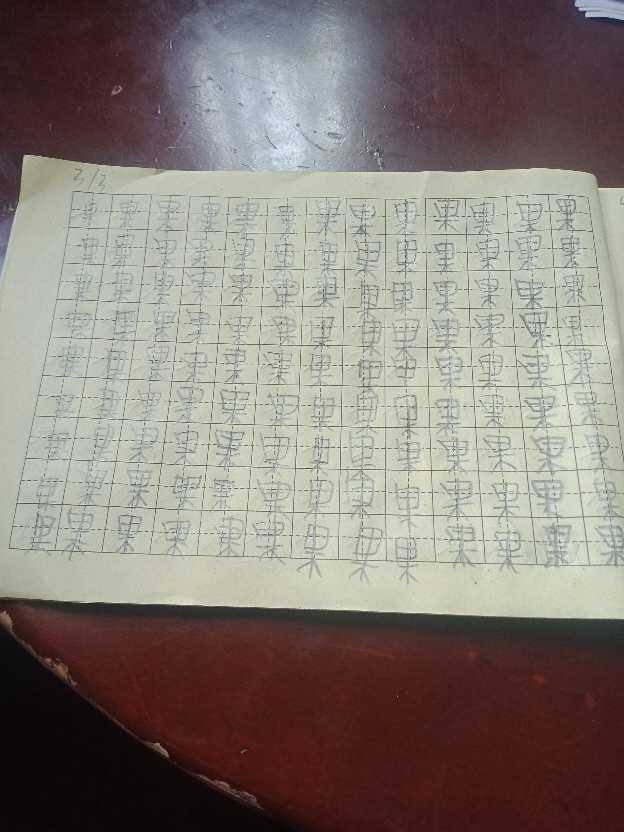 3/3
果 果 果 果 果 果 果 果 果 果 果 果 果
果 果 果 果 果 果 果 果 果 果 果 果 果
果 果 果 果 果 果 果 果 果 果 果 果 果
果 果 果 果 果 果 果 果 果 果 果 果 果
果 果 果 果 果 果 果 果 果 果 果 果 果
果 果 果 果 果 果 果 果 果 果 果 果 果
果 果 果 果 果 果 果 果 果 果 果 果 果
果 果 果 果 果 果 果 果 果 果 果 果 果
果 果 果 果 果 果 果 果 果 果 果 果 果